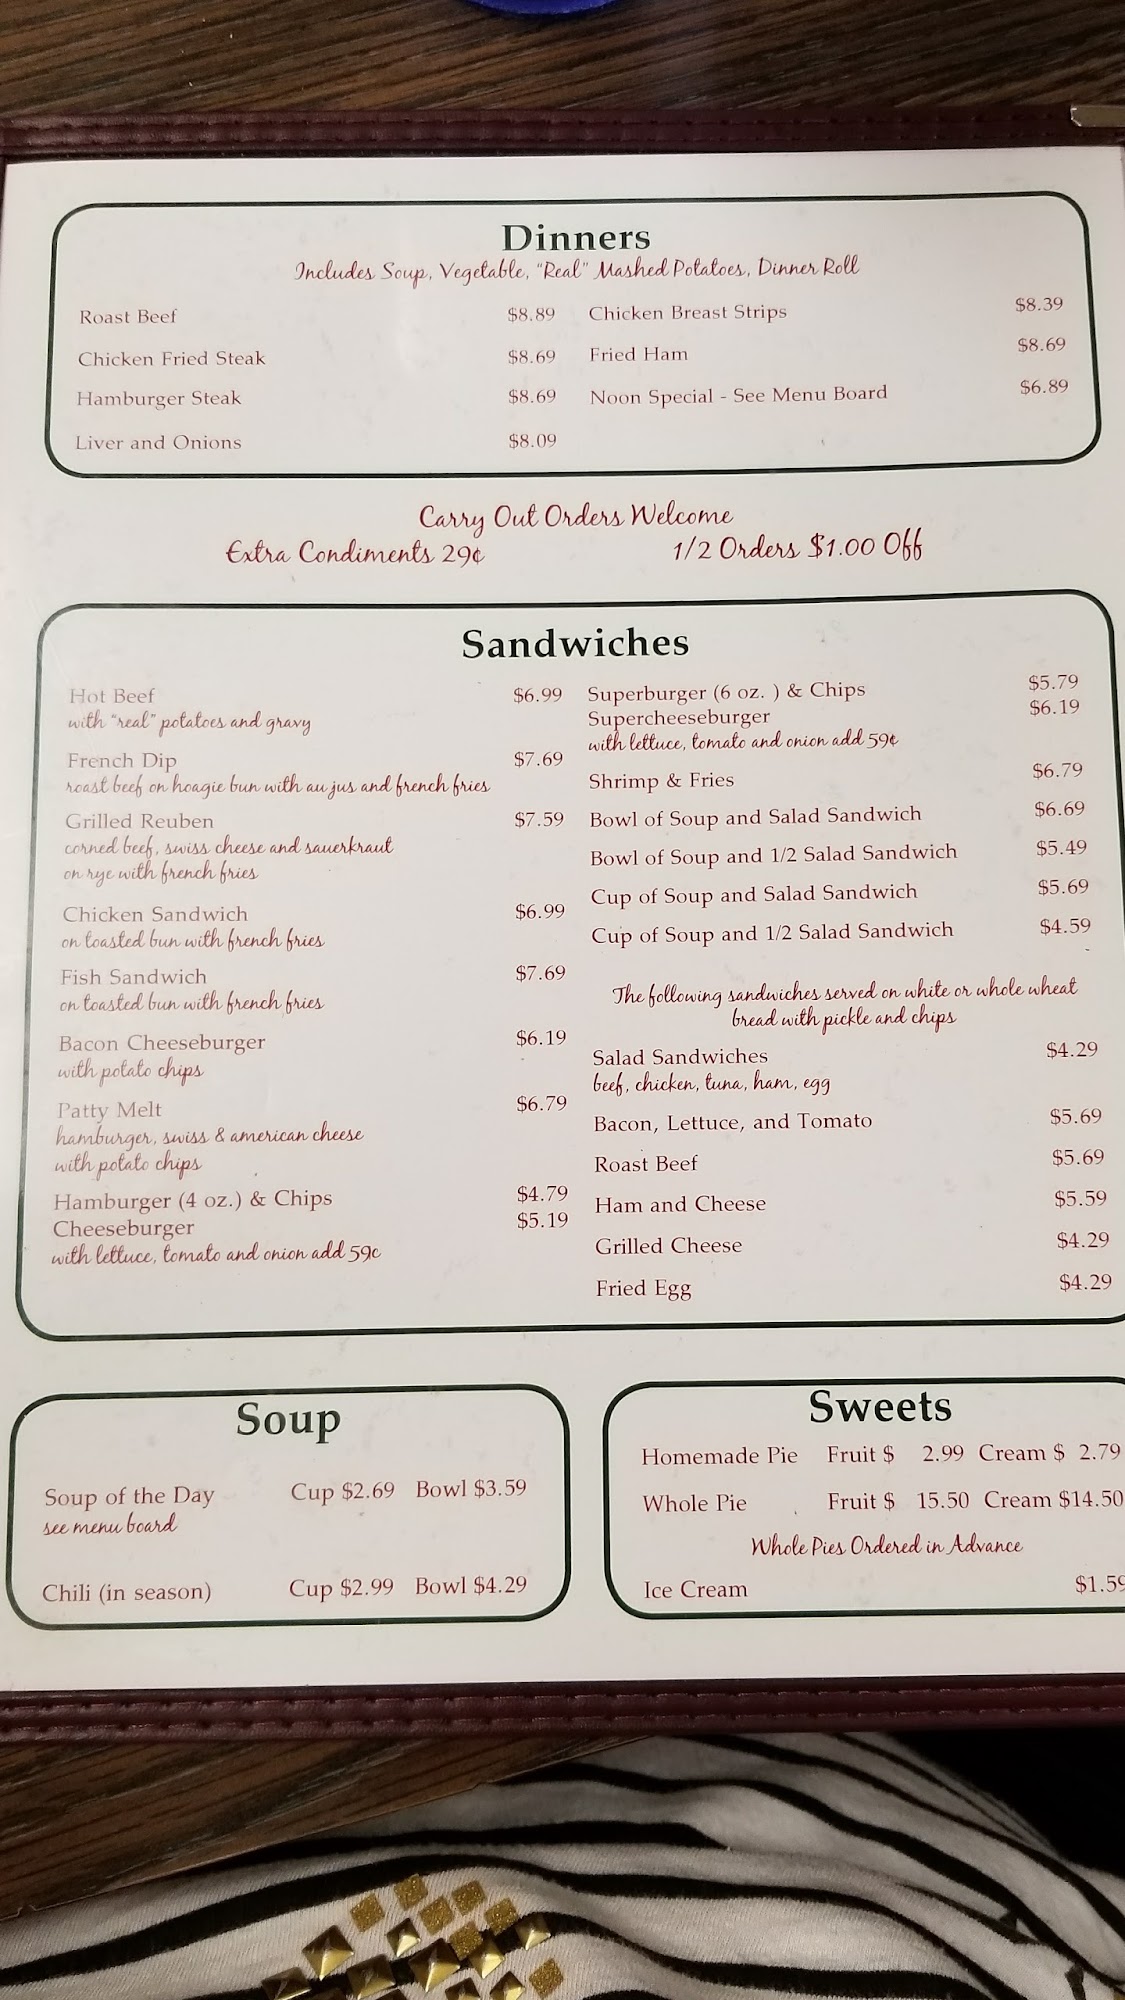 Dinners
Includes Soup, Vegetable, "Real" Mashed Potatoes, Dinner Roll
Roast Beef $8.89
Chicken Fried Steak $8.69
Hamburger Steak $8.69
Liver and Onions $8.09
Chicken Breast Strips $8.39
Fried Ham $8.69
Noon Special - See Menu Board $6.89
Carry Out Orders Welcome
Extra Condiments 29¢ 1/2 Orders $1.00 Off
Sandwiches
Hot Beef $6.99
with "real" potatoes and gravy
French Dip $7.69
roast beef on hoagie bun with au jus and french fries
Grilled Reuben $7.59
corned beef, swiss cheese and sauerkraut
on rye with french fries
Chicken Sandwich $6.99
on toasted bun with french fries
Fish Sandwich $7.69
on toasted bun with french fries
Bacon Cheeseburger $6.19
with potato chips
Patty Melt $6.79
hamburger, swiss & american cheese
with potato chips
Hamburger (4 oz.) & Chips $4.79
Cheeseburger $5.19
with lettuce, tomato and onion add 59¢
Superburger (6 oz. ) & Chips $5.79
Supercheeseburger $6.19
with lettuce, tomato and onion add 59¢
Shrimp & Fries $6.79
Bowl of Soup and Salad Sandwich $6.69
Bowl of Soup and 1/2 Salad Sandwich $5.49
Cup of Soup and Salad Sandwich $5.69
Cup of Soup and 1/2 Salad Sandwich $4.59
The following sandwiches served on white or whole wheat
bread with pickle and chips
Salad Sandwiches $4.29
beef, chicken, tuna, ham, egg
Bacon, Lettuce, and Tomato $5.69
Roast Beef $5.69
Ham and Cheese $5.59
Grilled Cheese $4.29
Fried Egg $4.29
Soup
Soup of the Day Cup $2.69 Bowl $3.59
see menu board
Chili (in season) Cup $2.99 Bowl $4.29
Sweets
Homemade Pie Fruit $ 2.99 Cream $ 2.79
Whole Pie Fruit $ 15.50 Cream $14.50
Whole Pies Ordered in Advance
Ice Cream $1.59